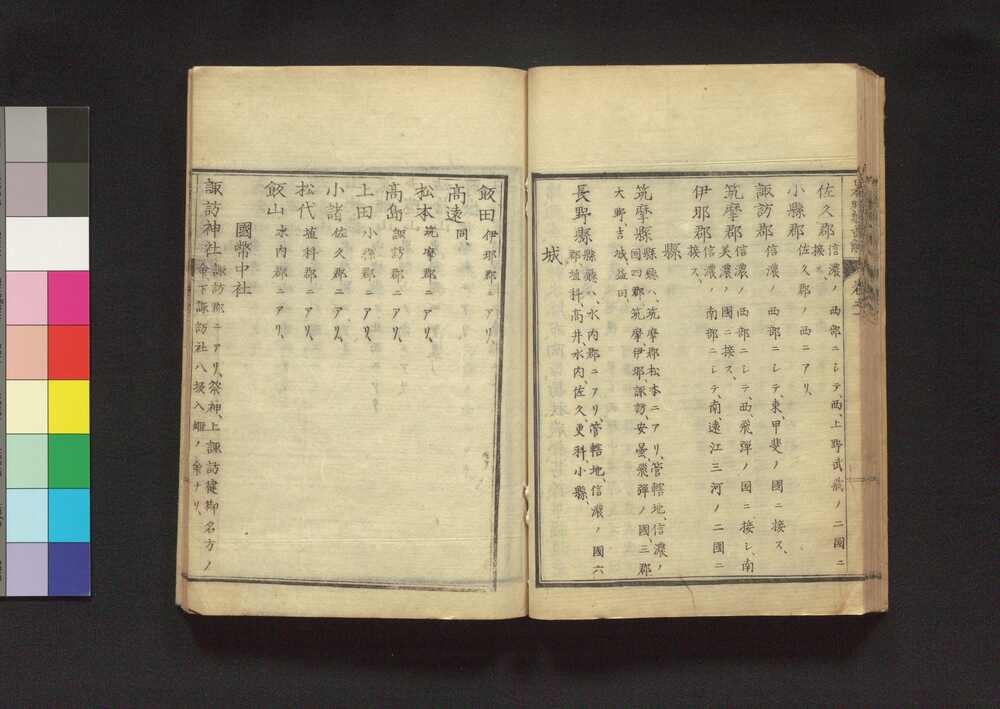 佐久郡 信濃ノ西部ニシテ、西、上野武蔵ノ二國ニ
接ス、
小縣郡 佐久郡ノ西ニアリ、
諏訪郡 信濃ノ西部ニシテ、東、甲斐ノ國ニ接ス、
筑摩郡 信濃ノ西部ニシテ、西、飛彈ノ国ニ接シ、南
美濃ノ國ニ接ス、
伊那郡 信濃ノ南部ニシテ、南、遠江三河ノ二國ニ
接ス、
縣
筑摩縣 縣廳ハ、筑摩郡松本ニアリ、管轄地、信濃ノ
國四郡、筑摩、伊那、諏訪、安曇、飛彈ノ國、三郡
大野、吉城、益田、
長野縣 縣廳ハ、水内郡ニアリ、管轄地、信濃ノ國六
郡、埴科、高井、水内、佐久、更科、小縣、
城
飯田 伊那郡ニアリ、
高遠 同、
松本 筑摩郡ニアリ、
高島 諏訪郡ニアリ、
上田 小縣郡ニアリ、
小諸 佐久郡ニアリ、
松代 埴科郡ニアリ、
飯山 水内郡ニアリ、
國幣中社
諏訪神社 諏訪郡ニアリ、祭神、上諏訪健御名方ノ
命、下諏訪社八坂入姫ノ命ナリ、